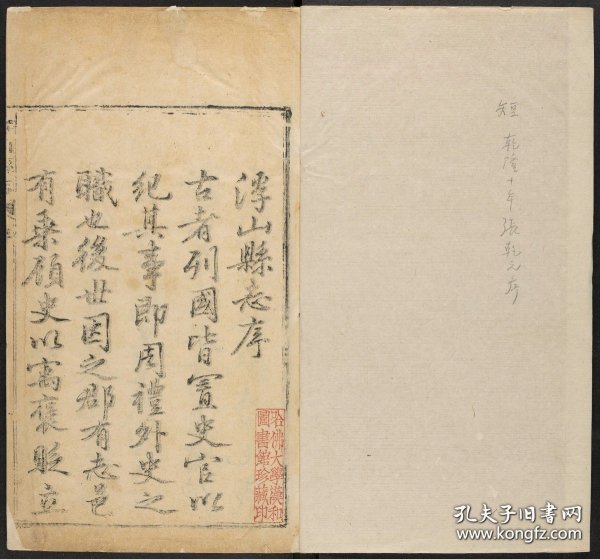 短 乾隆十年張乾元序
浮山縣志序
古者列國皆置史官以
紀其事即周禮外史之
職也後世因之郡有志邑
有乘顧史以寓褒貶立
哈佛大學漢和
圖書館珍藏印
孔夫子旧书网
www.kongfz.com